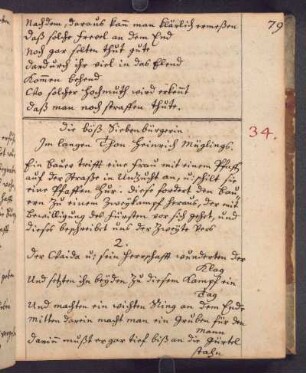 79
Nachdem, daraus kann man klärlich ermeßen
Daß solcher frevel an dem End
Noch gar selten thut gute
Dardurch ihr viel in das Elend
Kommen behend
Wo solcher Hochmuth wird erkänt
Daß man noch straffen thute.
34.
Die böß Siebenbürgerin
Im langen Thon Heinrich Müglings.
Ein Bauer trifft eine Frau mit einem Pfaff
auf der Straße in Unzucht an, u. schilt sie
eine Pfaffen Hur. diese fordert den Bau
ern zu einem Zweykampf heraus, der mit
Bewilligung des Fürsten vor sich geht, und
dieses beschreibt uns der Zweyte Vers
2.
Der Waida u. sein Herrschafft wunderten der
Klag
Und setzten ihn beyden zu diesem Kampf ein
Tag
Und machten ein weiten Ring an dem Ende
mitten darein macht man ein Gruben für den
Mann
darin mußt er gar tief biß an die Gürtel
stahn